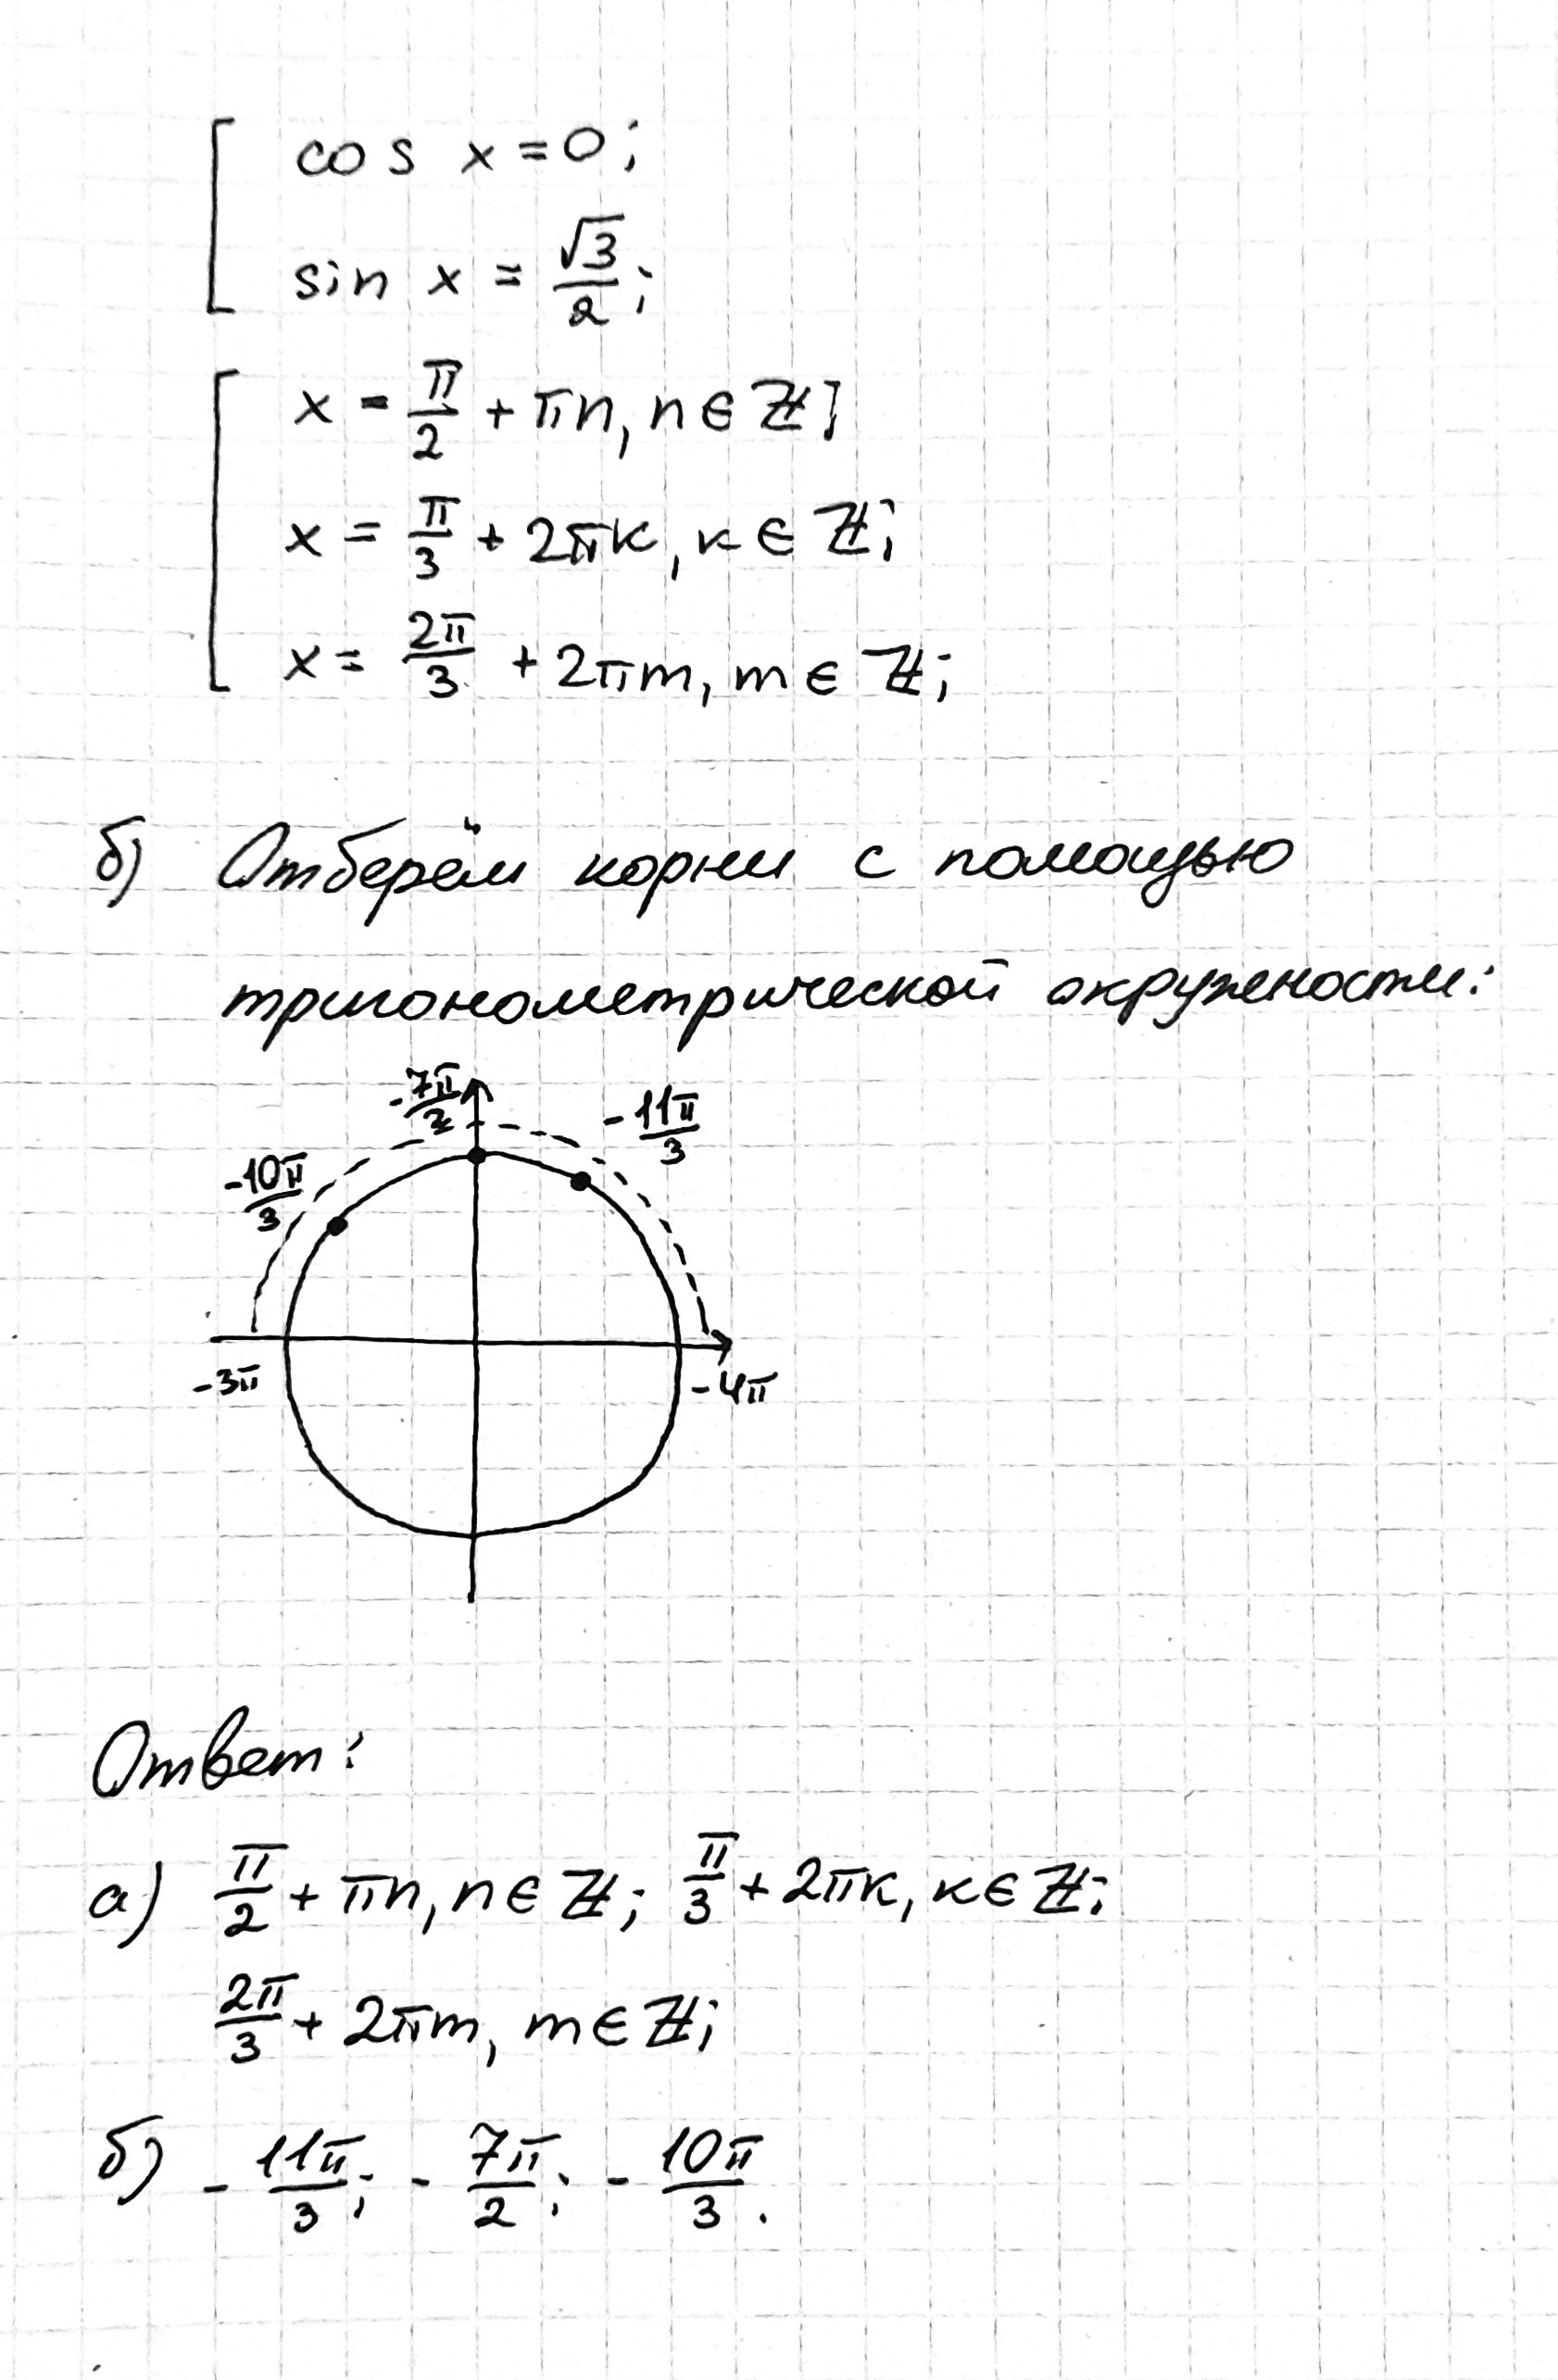 cos x = 0;
sin x = √3/2;
x = π/2 + πn, n ∈ ℤ;
x = π/3 + 2πk, k ∈ ℤ;
x = 2π/3 + 2πm, m ∈ ℤ;
б) Отберём корни с помощью
тригонометрической окружности:
-7π/2
-11π/3
-10π/3
-3π
-4π
Ответ:
а) π/2 + πn, n ∈ ℤ; π/3 + 2πk, k ∈ ℤ;
2π/3 + 2πm, m ∈ ℤ;
б) -11π/3; -7π/2; -10π/3.